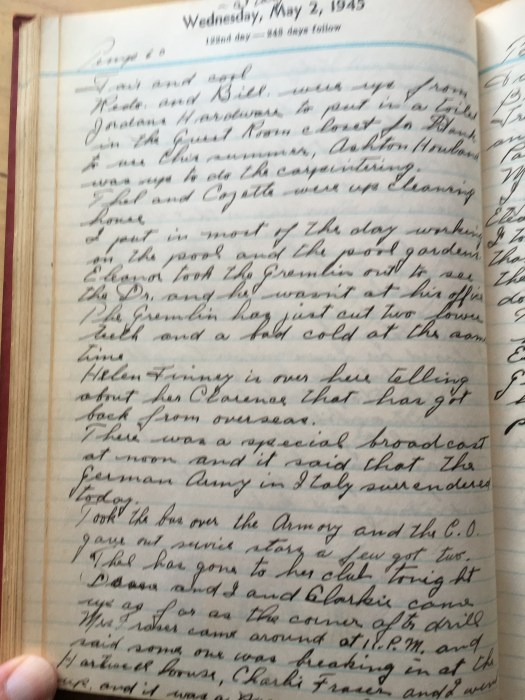 Wednesday, May 2, 1945
122nd day — 243 days follow
Temp 60
Fair and cool
Redo. and Bill were up from
Jordans Hardware to put in a toilet
in the Guest Room closet for Hank
to use this summer, Ashton Howland
was up to do the carpintering.
Thel and Cozette were up cleaning
house
I put in most of the day working
on the pool and the pool garden.
Eleanor took the Gremlin out to see
the Dr. and he wasn't at his office
The Gremlin has just cut two lower
teeth and a bad cold at the same
time
Helen Finney is over here telling
about her Clarence that has got
back from overseas.
There was a special broadcast
at noon and it said that the
German Army in Italy surrendered
today.
Took the bus over the Armory and the C.O.
gave out service stars a few got two.
Thel has gone to her club tonight
and I and Clarkie came
up as far as the corner aft drill
Mrs Fraser came around at P.M. and
said some one was breaking in at the
Hartwell house, Charlie Fraser and I went
up. and it was a